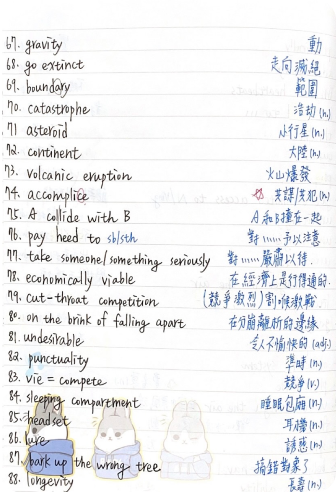 67. gravity 動
68. go extinct 走向滅絕
69. boundary 範圍
70. catastrophe 浩劫(n.)
71 asteroid 小行星(n.)
72. continent 大陸(n.)
73. volcanic eruption 火山爆發
74. accomplice ☆ 共謀/共犯(n.)
75. A collide with B A和B撞在一起
76. pay heed to sb/sth 對……予以注意
77. take someone/something seriously 對……嚴肅以待.
78. economically viable 在經濟上是行得通的.
79. cut-throat competition (競爭激烈)割喉激戰
80. on the brink of falling apart 在分崩離析的邊緣
81. undesirable 令人不愉快的(adj.)
82. punctuality 準時(n.)
83. vie = compete 競爭(v.)
84. sleeping compartment 睡眠包廂(n.)
85. headset 耳機(n.)
86. lure 誘惑(n.)
87. bark up the wrong tree 搞錯對象了
88. longevity 長壽(n.)